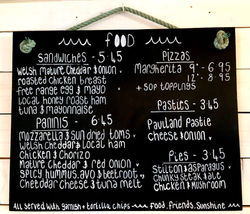 FOOD
Sandwiches - 5.45
Welsh Mature Cheddar & Onion
Roasted Chicken Breast
Free Range Egg & Mayo
Local Honey Roast Ham
Tuna & Mayonnaise
Paninis - 6.45
Mozzarella & Sun Dried Toms
Welsh Cheddar & Local Ham
Chicken & Chorizo
Mature Cheddar & Red Onion
Spicy Hummus, Avo & Beetroot
Cheddar Cheese & Tuna Melt
Pizzas
Margherita 9" - 6.95
12" - 8.95
+ 50p Toppings
Pasties - 3.45
Pauland Pastie
Cheese & Onion
Pies - 3.45
Stilton & Asparagus
Chunky Steak & Ale
Chicken & Mushroom
All served with garnish & tortilla chips
Food, Friends, Sunshine